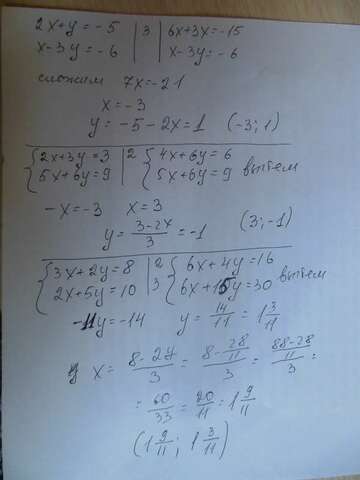 2x+y=-5 | 3 | 6x+3x=-15
x-3y=-6 | | x-3y=-6
сложим 7x=-21
x=-3
y=-5-2x=1 (-3; 1)
2x+3y=3 | 2 4x+6y=6
5x+6y=9 | 5x+6y=9 вычтем
-x=-3 x=3
y=\frac{3-2x}{3}=-1 (3; -1)
3x+2y=8 | 2 6x+4y=16
2x+5y=10 | 3 6x+15y=30 вычтем
-11y=-14 y=\frac{14}{11}=1\frac{3}{11}
x=\frac{8-2y}{3}=\frac{8-\frac{28}{11}}{3}=\frac{\frac{88-28}{11}}{3}=
=\frac{60}{33}=\frac{20}{11}=1\frac{9}{11}
(1\frac{9}{11}; 1\frac{3}{11})